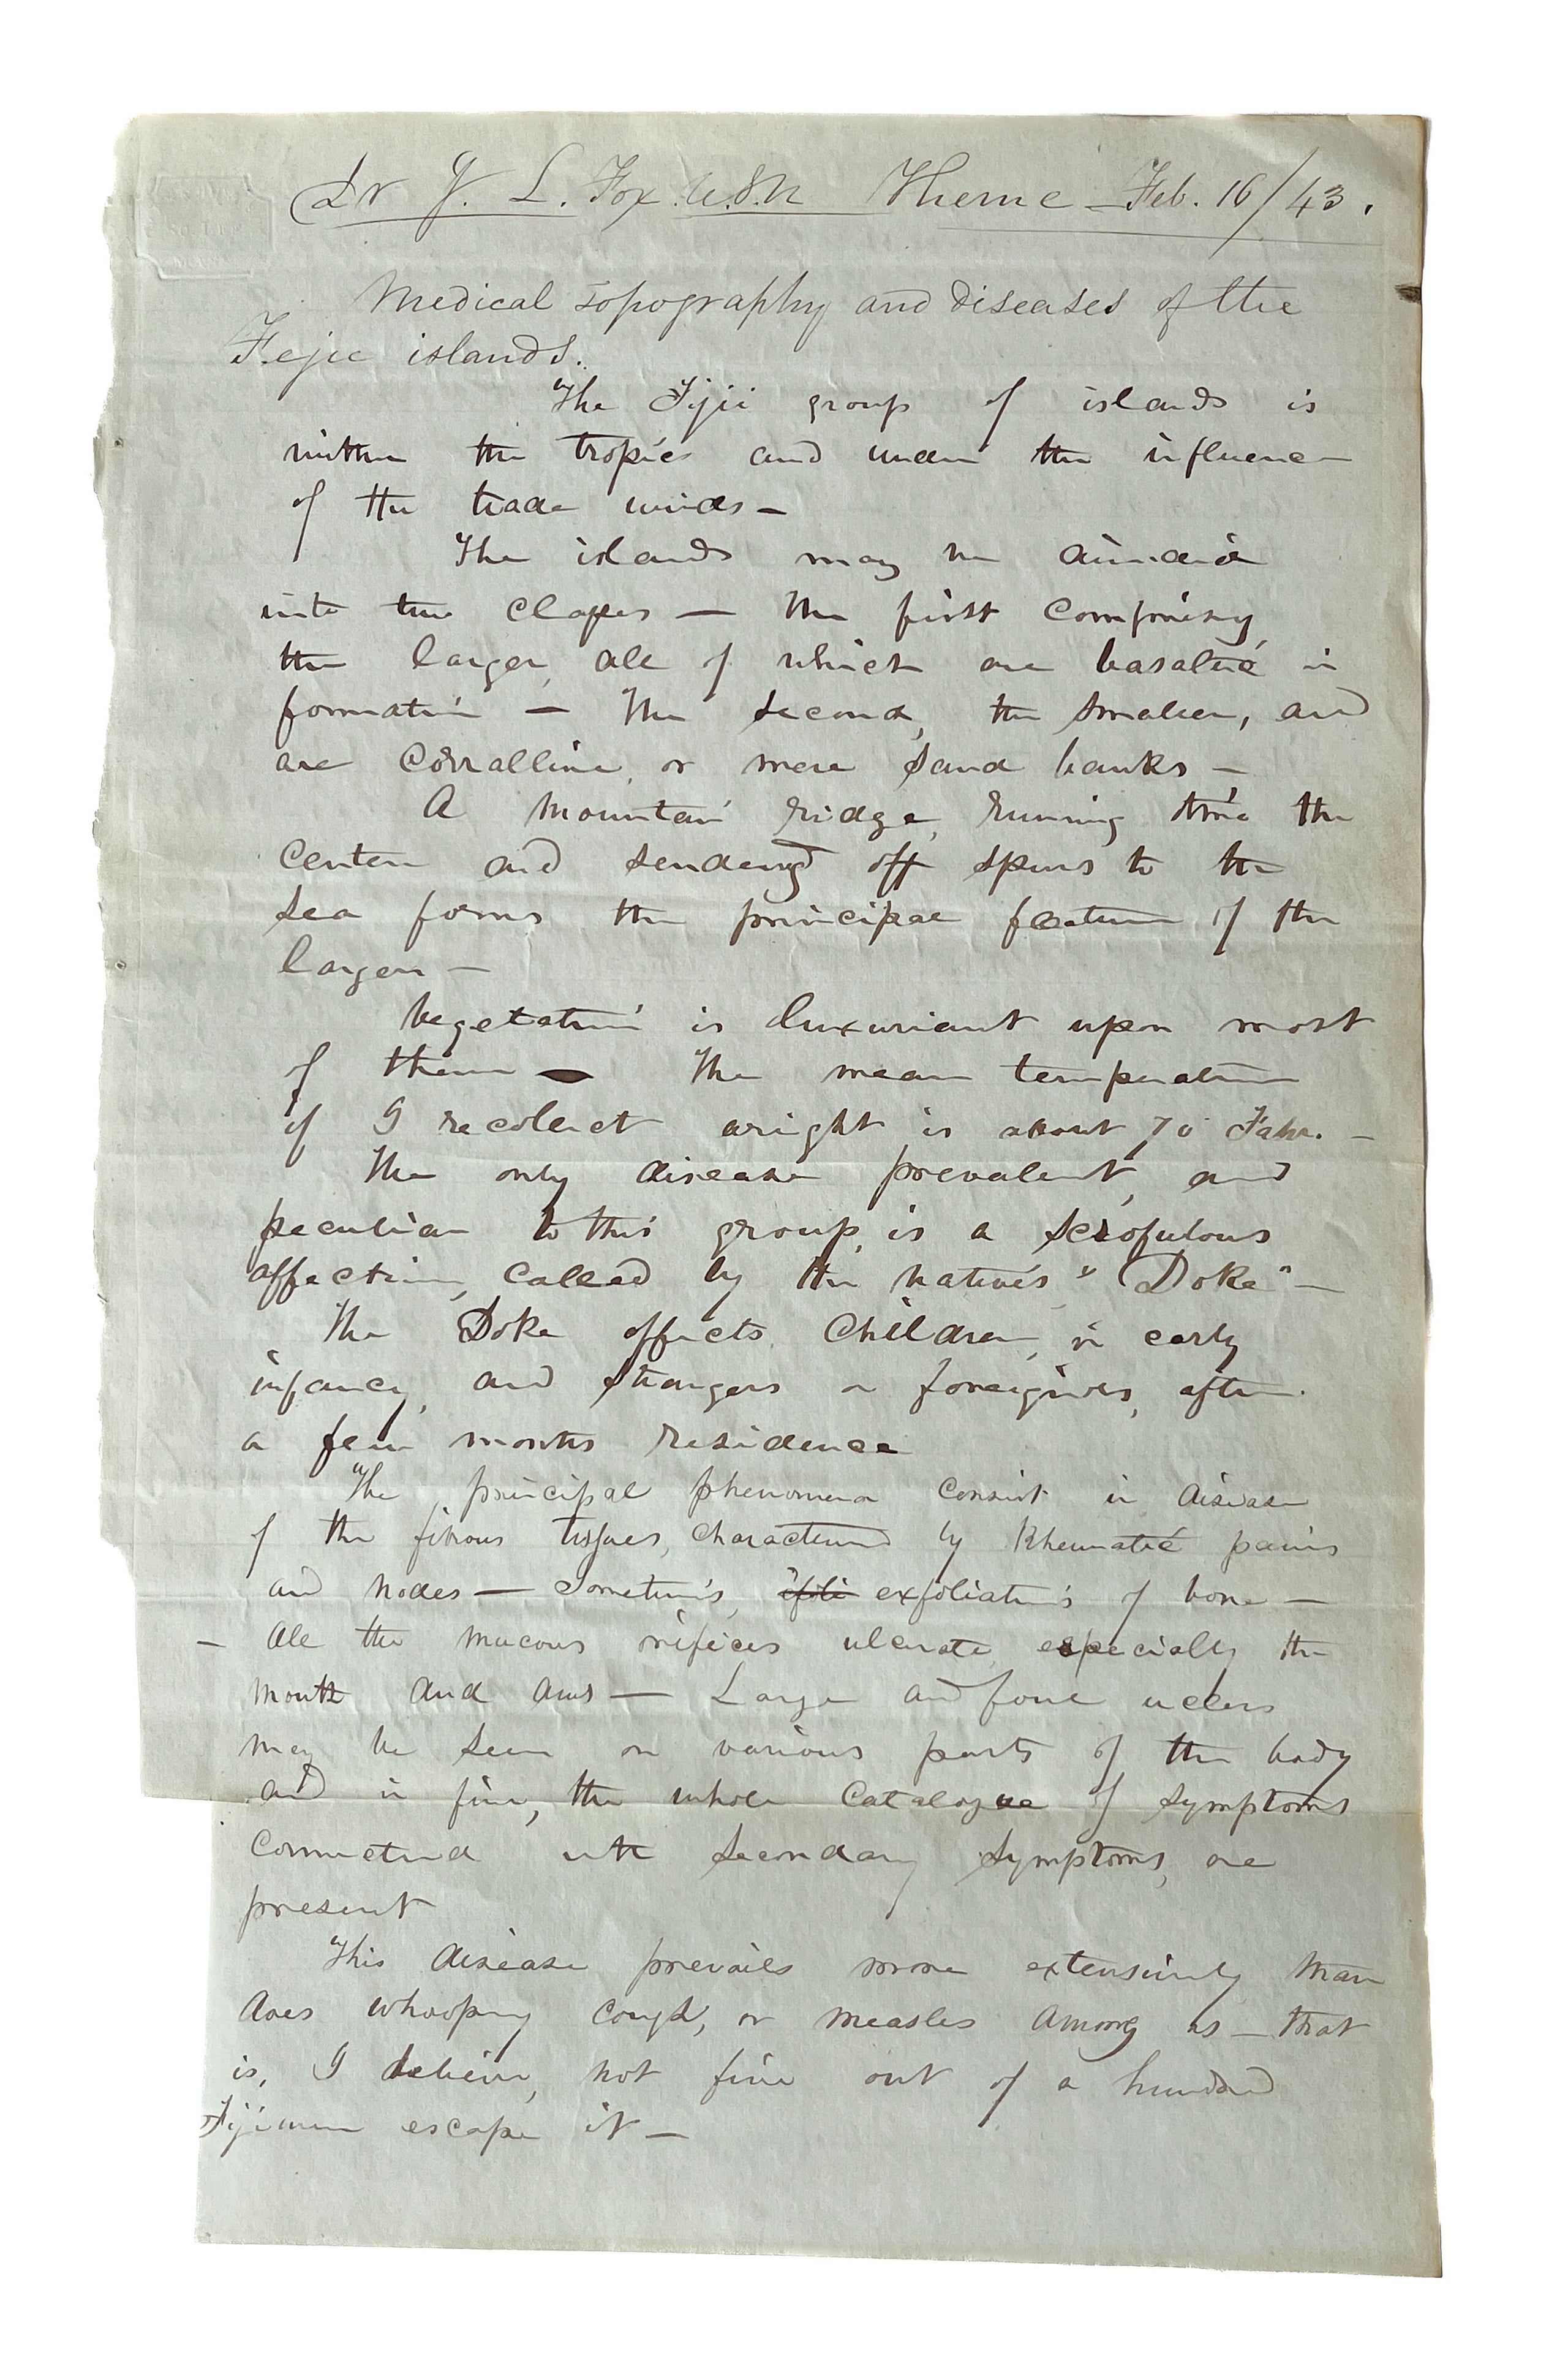 Dr J. L. Fox. U.S.N Theme - Feb. 16/43.
Medical Topography and Diseases of the
Fejee islands.
The Fijii group of islands is
within the tropics and under the influence
of the trade winds —
The islands may be divided
into two classes — the first comprising
the larger, all of which are basaltic in
formation — The second, the smaller, and
are corralline, or mere sand banks —
A mountain ridge, running thro' the
center and sending off spurs to the
sea forms the principal feature of the
larger —
Vegetation is luxuriant upon most
of them — The mean temperature
if I recollect aright, is about 70° Fahr. —
The only disease prevalent, and
peculiar to this group, is a scrofulous
affection, called by the natives "Doke" —
The Doke affects children, in early
infancy, and strangers or foreigners, after
a few months residence
The principal phenomena consist in disease
of the fibrous tissues, characterised by Rheumatic pains
and nodes — Sometimes, exfoliations of bone —
— All the mucous orifices ulcerate, especially the
mouth and anus — Large and foul ulcers
may be seen on various parts of the body
and in fine, the whole catalogue of symptoms
connected with secondary symptoms, are
present
This disease prevails more extensively than
does whooping cough, or measles among us — that
is, I believe, not five out of a hundred
Fijimen escape it —